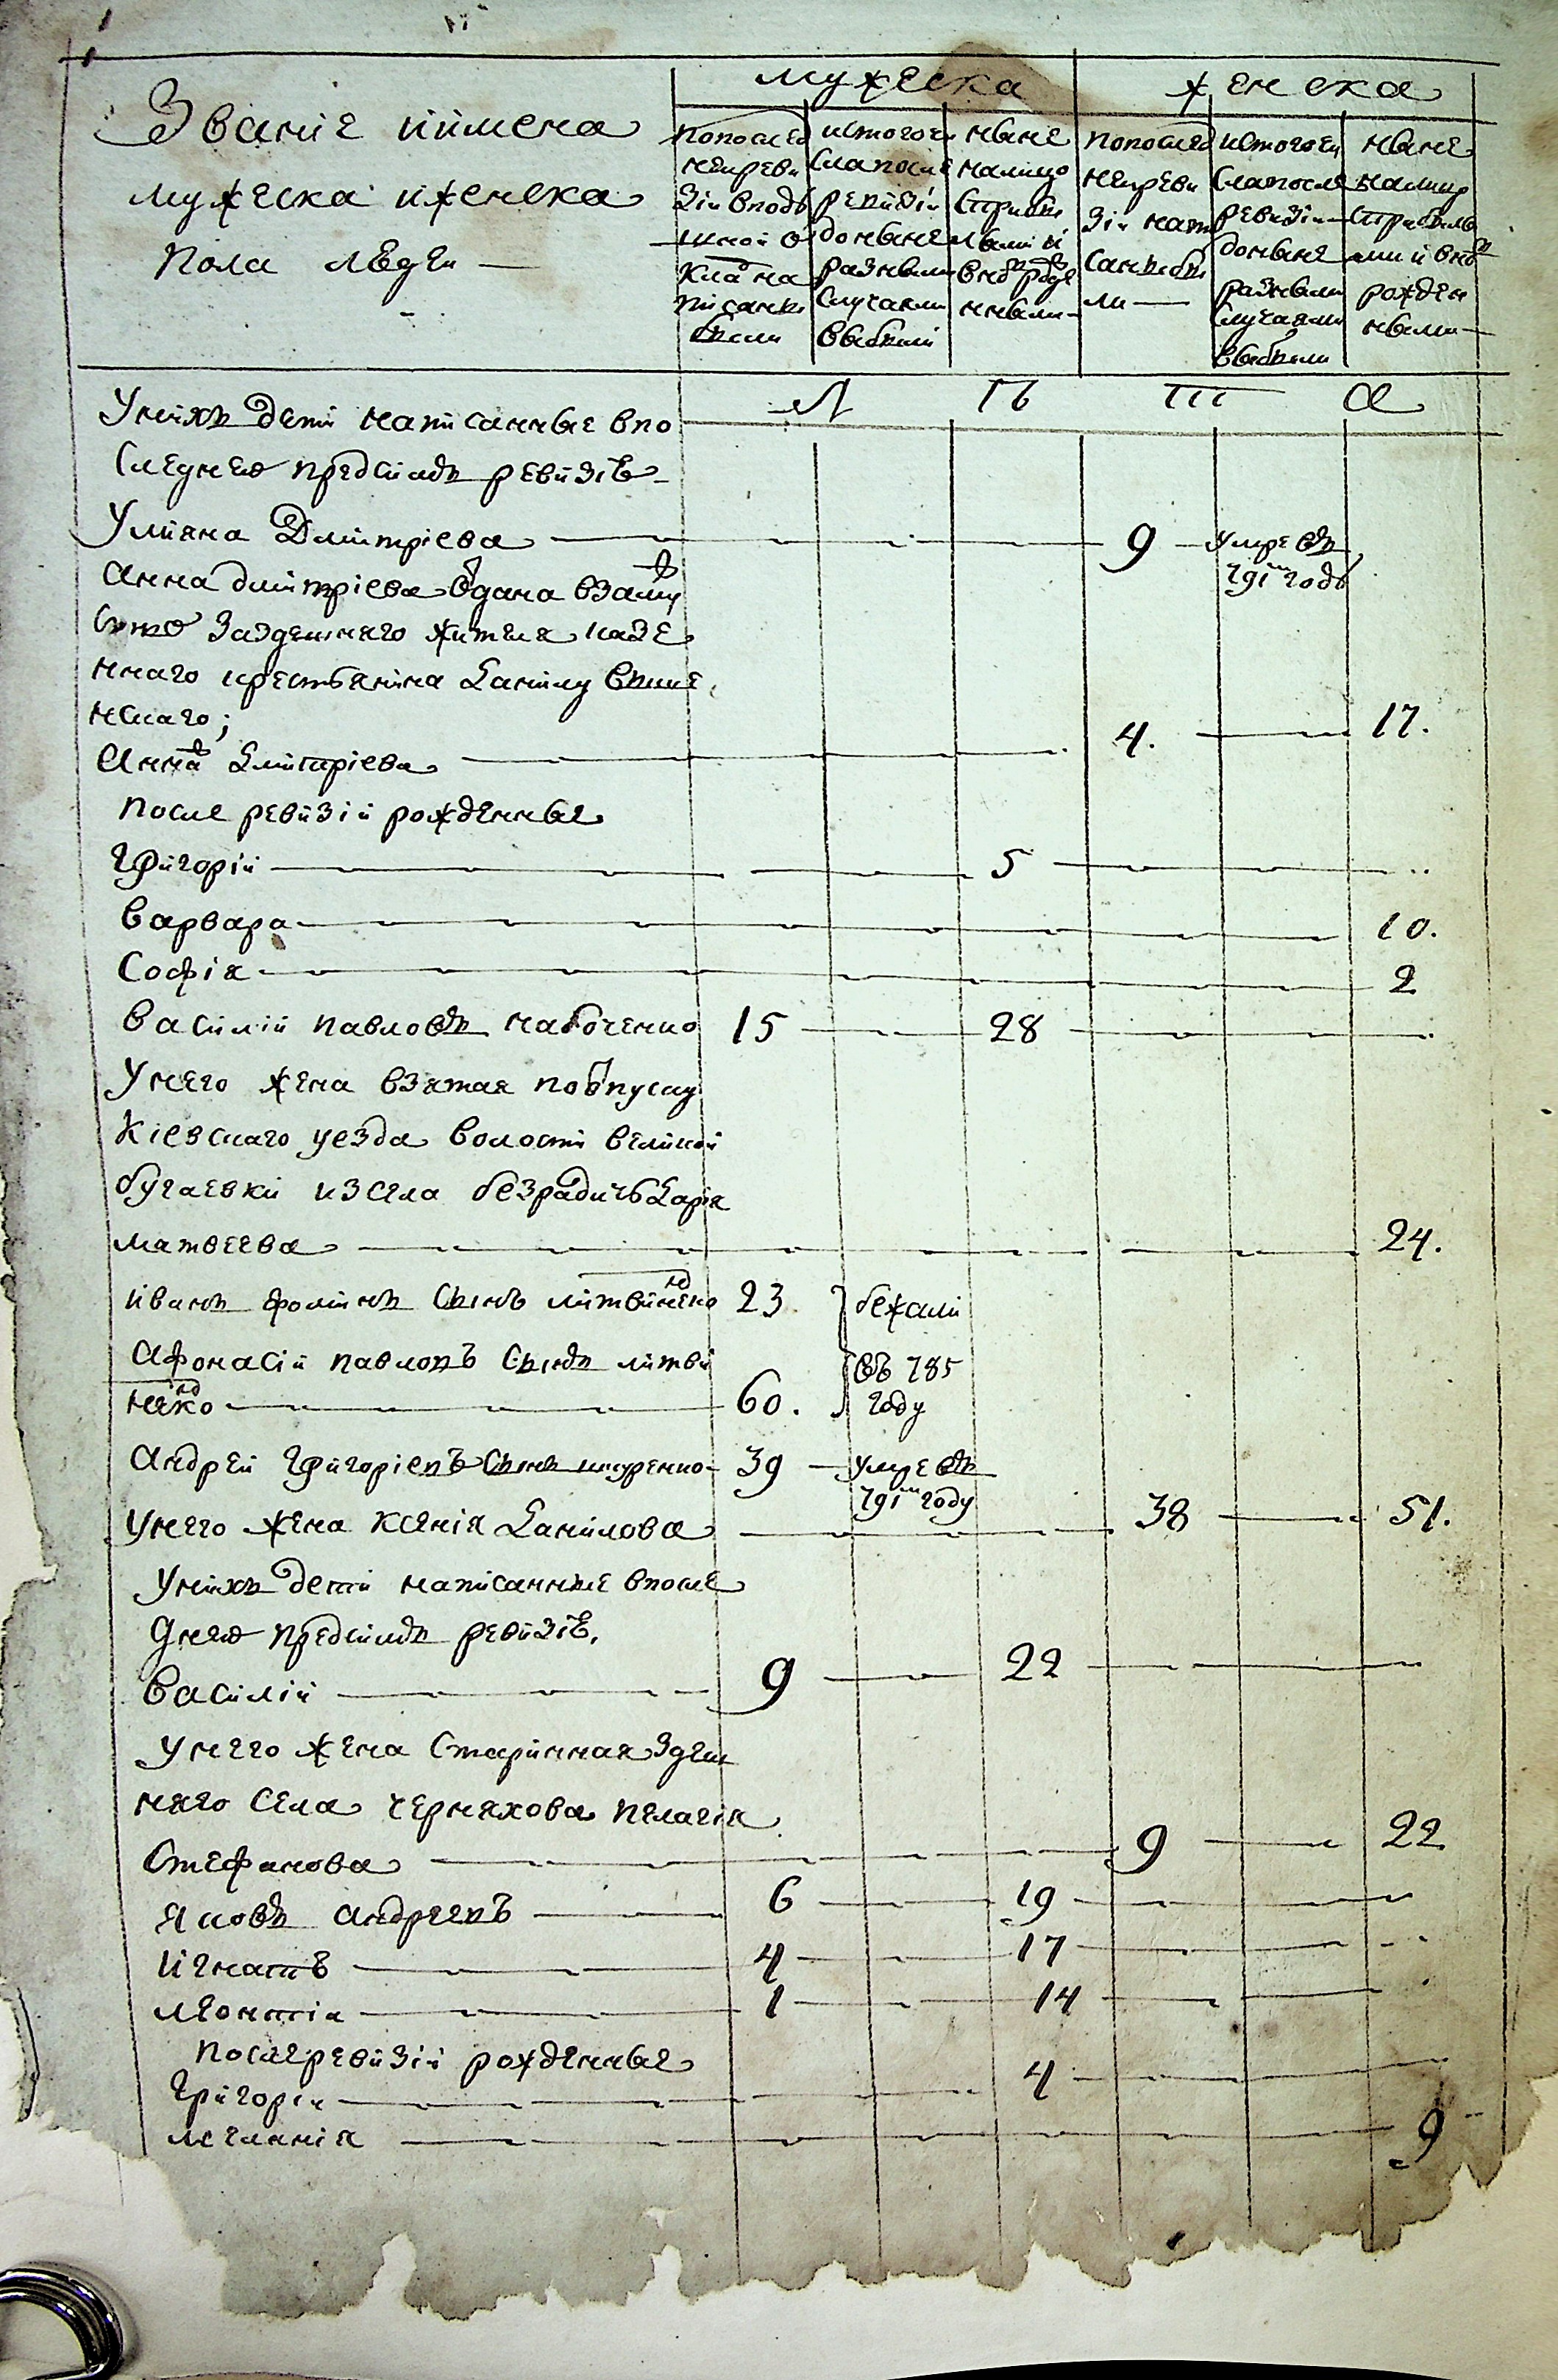 мужеска
женска
Званіе иимена
мужеска иженска
пола людеи
попослед
неиреви
зіи вподу
шнои о
кла на
писаны
были
истогочи
сла после
ревизіи
доныне
разными
случаями
выбыли
ныне
налицо
сприбы
лыми и
вно рожде
нными
попослед
неиреви
зіи напи
саны бы
ли
истогочи
сла после
ревизіи
доныне
разными
случаями
выбыли
ныне
налицо
сприбылы
ми и вно
рожден
ными
Унихъ дети написанные впо
следнею предсимъ ревизіею
Улияна Дмитріева 9 умре въ
791 годъ
Анна дмитріева одана взаму
ство заздешнего жителя казе
ннаго крестьянина Данилу
наго;
Анна Дмитріева 4. 17.
После ревизіи рожденные
Григоріи 5
Варвара 10.
Софія 2
Василіи павловъ набоченко 15 28
Унего жена взятая поотпуску
Кіевскаго уезда волости великой
бугаевки изсела безрадичъ Дарія
матвеева 24.
Иванъ Фоминъ сынъ литвиненко 23. бежали
Афонасіи павловъ сынъ литви
ненко 60. въ 785
году
Андреи Григоріевъ сынъ шкуренко 39 умре въ
791 году
Унего жена Ксенія Данилова 38 51.
Унихъ дети написанные впосле
днею предсимъ ревизіею.
Василіи 9 22
Унего жена старинная здеш
няго села черняхова пелагія
Стефанова 9 22
Яковъ Андреевъ 6 19
Игнатъ 4 17
Леонтіи 1 14
Послеревизіи рожденные
Григоріи 4
меланія 9